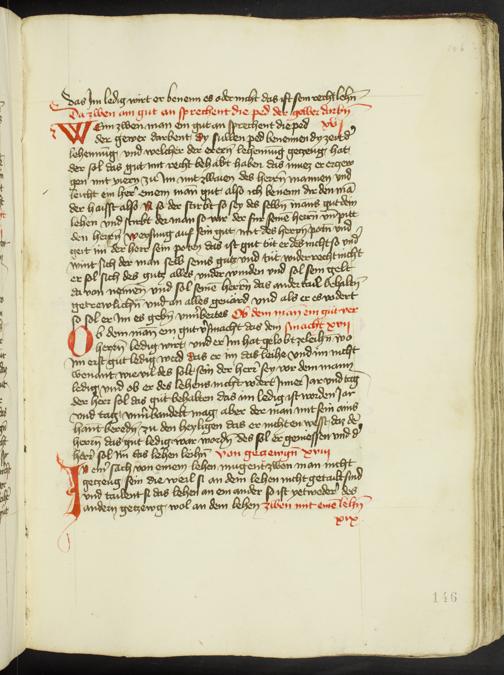 das Im ledig wirt er benenn es oder nicht das ist sein recht lehn
Da zwen ain gut an sprechent die ped der gewer darbn
Wenn zwen man ein gut an sprechent die ped xvi
der gewer darbent dy sullen ped benennen dy zeit
lehennung und welicher der erern lehennung gezeug hat
der sol das gut mit recht behabt haben das muez er erzew
gen mit viern zu im mit zwaien des herrn mannen und
leicht ein her einem man gut also ich benenn dir den man
der haisst also N so der stirbt so sey des selbn mans gut dein
lehen und stirbt der man so var der für seine herrn und pitt
den herrn weisung auf sein gut mit des herrn potn und
geit im der herr sein potn das ist gut tüt er des nicht so und
wint sich der man selb seins gutz und tüt widerrecht nicht
er sol sich des gutz alles under winden und sol sein gelt
da von nemen und sol seine herrn das ander tail behaltn
getrewlichn und an alles gevärd und als er es vodert
so sol er im es gebn unverbertes Ob dem man ein gut ver
Ob dem man ein gut versmacht das dem smacht xvii
herrn ledig wirt und er im hat gelobt zeleihn wo
im erst gut ledig werd das er im das leihe und im nicht
benant wie vil des solt sein der herr sey vor dem mann
ledig und ob er des lehens nicht vodert inner Jar und tag
der herr sol das gut behalten das am ledig ist worden Jar
und tag unverbandelt mag aber der man mit sein ains
hant beredn zu den heyligen das er nicht en wesst das de
herrn das gut ledig war wordn des sol er geniessen und d
herr sol im das lehen leihn von gezewgn xviii
In einer sach von einem lehen mugent zwen man nicht
gezeug sein die weil si an dem lehen nicht getailt sind
und tailent si das lehen an em ander so ist yetweder des
andern gezewg wol an dem lehen zwen mit eine lehn
xix
146